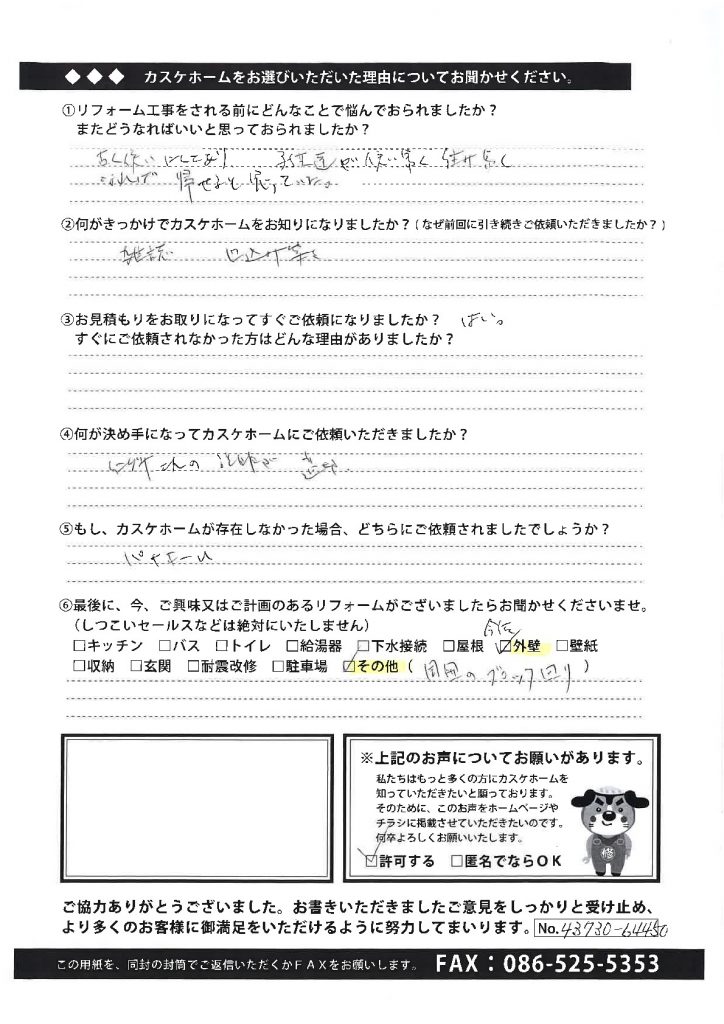 ◆◆◆ カスケホームをお選びいただいた理由についてお聞かせください。
①リフォーム工事をされる前にどんなことで悩んでおられましたか？
またどうなればいいと思っておられましたか？
②何がきっかけでカスケホームをお知りになりましたか？（なぜ前回に引き続きご依頼いただきましたか？）
雑誌 口込み等
③お見積もりをお取りになってすぐご依頼になりましたか？ はい。
すぐにご依頼されなかった方はどんな理由がありましたか？
④何が決め手になってカスケホームにご依頼いただきましたか？
さんの
⑤もし、カスケホームが存在しなかった場合、どちらにご依頼されましたでしょうか？
⑥最後に、今、ご興味又はご計画のあるリフォームがございましたらお聞かせくださいませ。
（しつこいセールスなどは絶対にいたしません）
□キッチン □バス □トイレ □給湯器 □下水接続 □屋根 ☑外壁 □壁紙
□収納 □玄関 □耐震改修 □駐車場 ☑その他（ 周囲のブロック回り ）
※上記のお声についてお願いがあります。
私たちはもっと多くの方にカスケホームを
知っていただきたいと願っております。
そのために、このお声をホームページや
チラシに掲載させていただきたいのです。
何卒よろしくお願いいたします。
☑許可する □匿名でならOK
ご協力ありがとうございました。お書きいただきましたご意見をしっかりと受け止め、
より多くのお客様に御満足をいただけるように努力してまいります。 No.43730-64450
この用紙を、同封の封筒でご返信いただくかFAXをお願いします。 FAX：086-525-5353